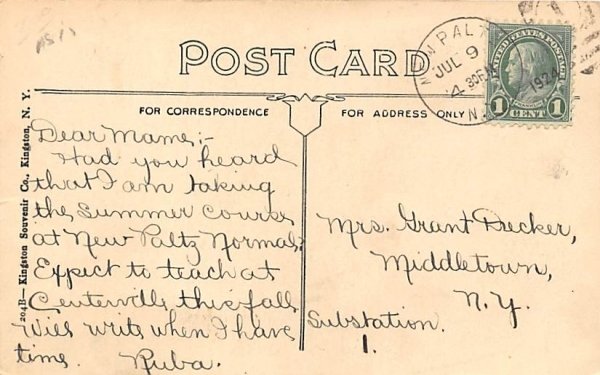 POST CARD
NEW PALTZ
JUL 9
4 30PM
1924
N.Y.
UNITED STATES POSTAGE
FRANKLIN
1 CENT 1
FOR CORRESPONDENCE
FOR ADDRESS ONLY
204B—Kingston Souvenir Co., Kingston, N. Y.
Dear Mame:-
Had you heard
that I am taking
the Summer Course
at New Paltz Normal?
Expect to teach at
Centerville this fall.
Will write when I have
time. Ruba.
Mrs. Grant Decker,
Middletown,
N.Y.
Substation.
1.